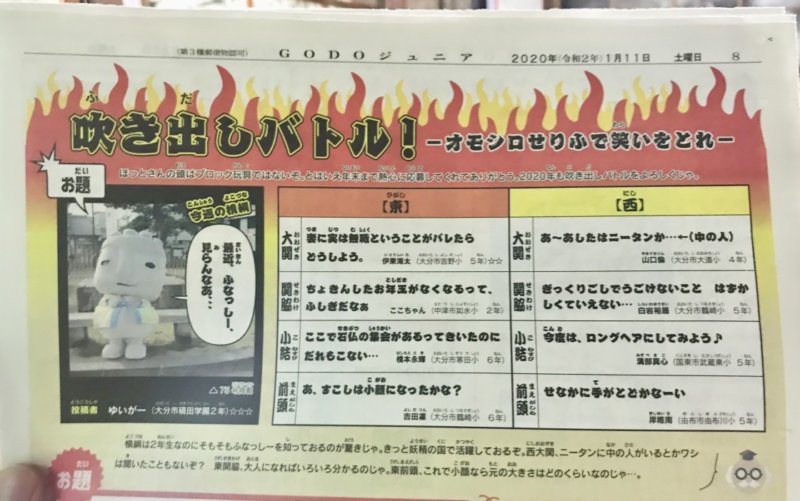 (第3種郵便物認可) GODOジュニア 2020年(令和2年)1月11日 土曜日 8
吹き出しバトル! −オモシロせりふで笑いをとれ−
ほっとさんの頭はブロック玩具ではないぞ。とはいえ年末まで熱心に応募してくれてありがとう。2020年も吹き出しバトルをよろしくじゃ。
お題
今週の横綱
最近、ふなっしー、
見らんなあ…
投稿者 ゆいがー (大分市碩田学園2年)☆☆☆
【東】
大関 妻に実は無職ということがバレたら
どうしよう。 伊東海太 (大分市吉野小 5年)☆☆
関脇 ちょきんしたお年玉がなくなるって、
ふしぎだなぁ ここちゃん (中津市如水小 2年)
小結 ここで石仏の集会があるってきいたのに
だれもこない… 橋本永輝 (大分市寒田小 6年)
前頭 あ、すこしは小顔になったかな?
吉田凜 (大分市鶴崎小 6年)
【西】
大関 あ〜あしたはニータンか…←(中の人)
山口倫 (大分市大道小 4年)
関脇 ぎっくりごしでうごけないこと はずか
しくていえない… 白岩裕理 (大分市鶴崎小 5年)
小結 今度は、ロングヘアにしてみよう♪
満部真心 (国東市武蔵東小 5年)
前頭 せなかに手がとどかなーい
岸唯南 (由布市由布川小 5年)
横綱は2年生なのにそもそもふなっしーを知っておるのが驚きじゃ。きっと妖精の国で活躍しておるぞ。西大関、ニータンに中の人がいるとかワシ
は聞いたこともないぞ? 東関脇、大人になればいろいろ分かるのじゃ。東前頭、これで小顔なら元の大きさはどのくらいなのじゃ…。
お題